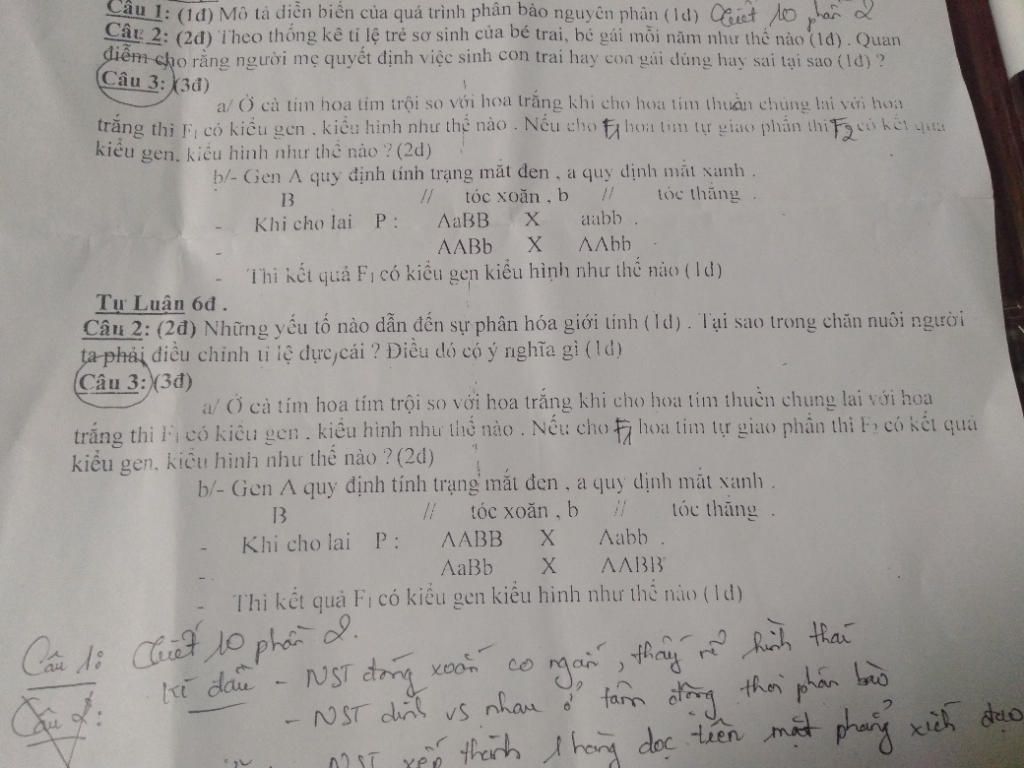 Câu 1: (1đ) Mô tả diễn biến của quá trình phân bào nguyên phân (1đ) Tiết 10 phần 2
Câu 2: (2đ) Theo thống kê tỉ lệ trẻ sơ sinh của bé trai, bé gái mỗi năm như thế nào (1đ) . Quan
điểm cho rằng người mẹ quyết định việc sinh con trai hay con gái đúng hay sai tại sao (1đ) ?
Câu 3: (3đ)
a/ Ở cà tím hoa tím trội so với hoa trắng khi cho hoa tím thuần chủng lai với hoa
trắng thì F1 có kiểu gen , kiểu hình như thế nào . Nếu cho F1 hoa tím tự giao phấn thì F2 có kết quả
kiểu gen, kiểu hình như thế nào ? (2đ)
b/- Gen A quy định tính trạng mắt đen , a quy định mắt xanh .
B // tóc xoăn , b // tóc thẳng .
- Khi cho lai P : AaBB X aabb .
- AABb X AAbb
- Thì kết quả F1 có kiểu gen kiểu hình như thế nào (1đ)
Tự Luận 6đ .
Câu 2: (2đ) Những yếu tố nào dẫn đến sự phân hóa giới tính (1đ) . Tại sao trong chăn nuôi người
ta phải điều chỉnh tỉ lệ đực,cái ? Điều đó có ý nghĩa gì (1đ)
Câu 3: (3đ)
a/ Ở cà tím hoa tím trội so với hoa trắng khi cho hoa tím thuần chung lai với hoa
trắng thì F1 có kiểu gen , kiểu hình như thế nào . Nếu cho F1 hoa tím tự giao phấn thì F2 có kết quả
kiểu gen, kiểu hình như thế nào ? (2đ)
b/- Gen A quy định tính trạng mắt đen , a quy định mắt xanh .
B // tóc xoăn , b // tóc thẳng .
- Khi cho lai P : AABB X Aabb .
- AaBb X AABB
- Thì kết quả F1 có kiểu gen kiểu hình như thế nào (1đ)
Câu 1: Tiết 10 phần 2.
Kì đầu - NST đóng xoắn co ngắn, thấy rõ hình thái
Câu 2: - NST dính vs nhau ở tâm động thoi phân bào
NST xếp thành 1 hàng dọc trên mặt phẳng xích đạo